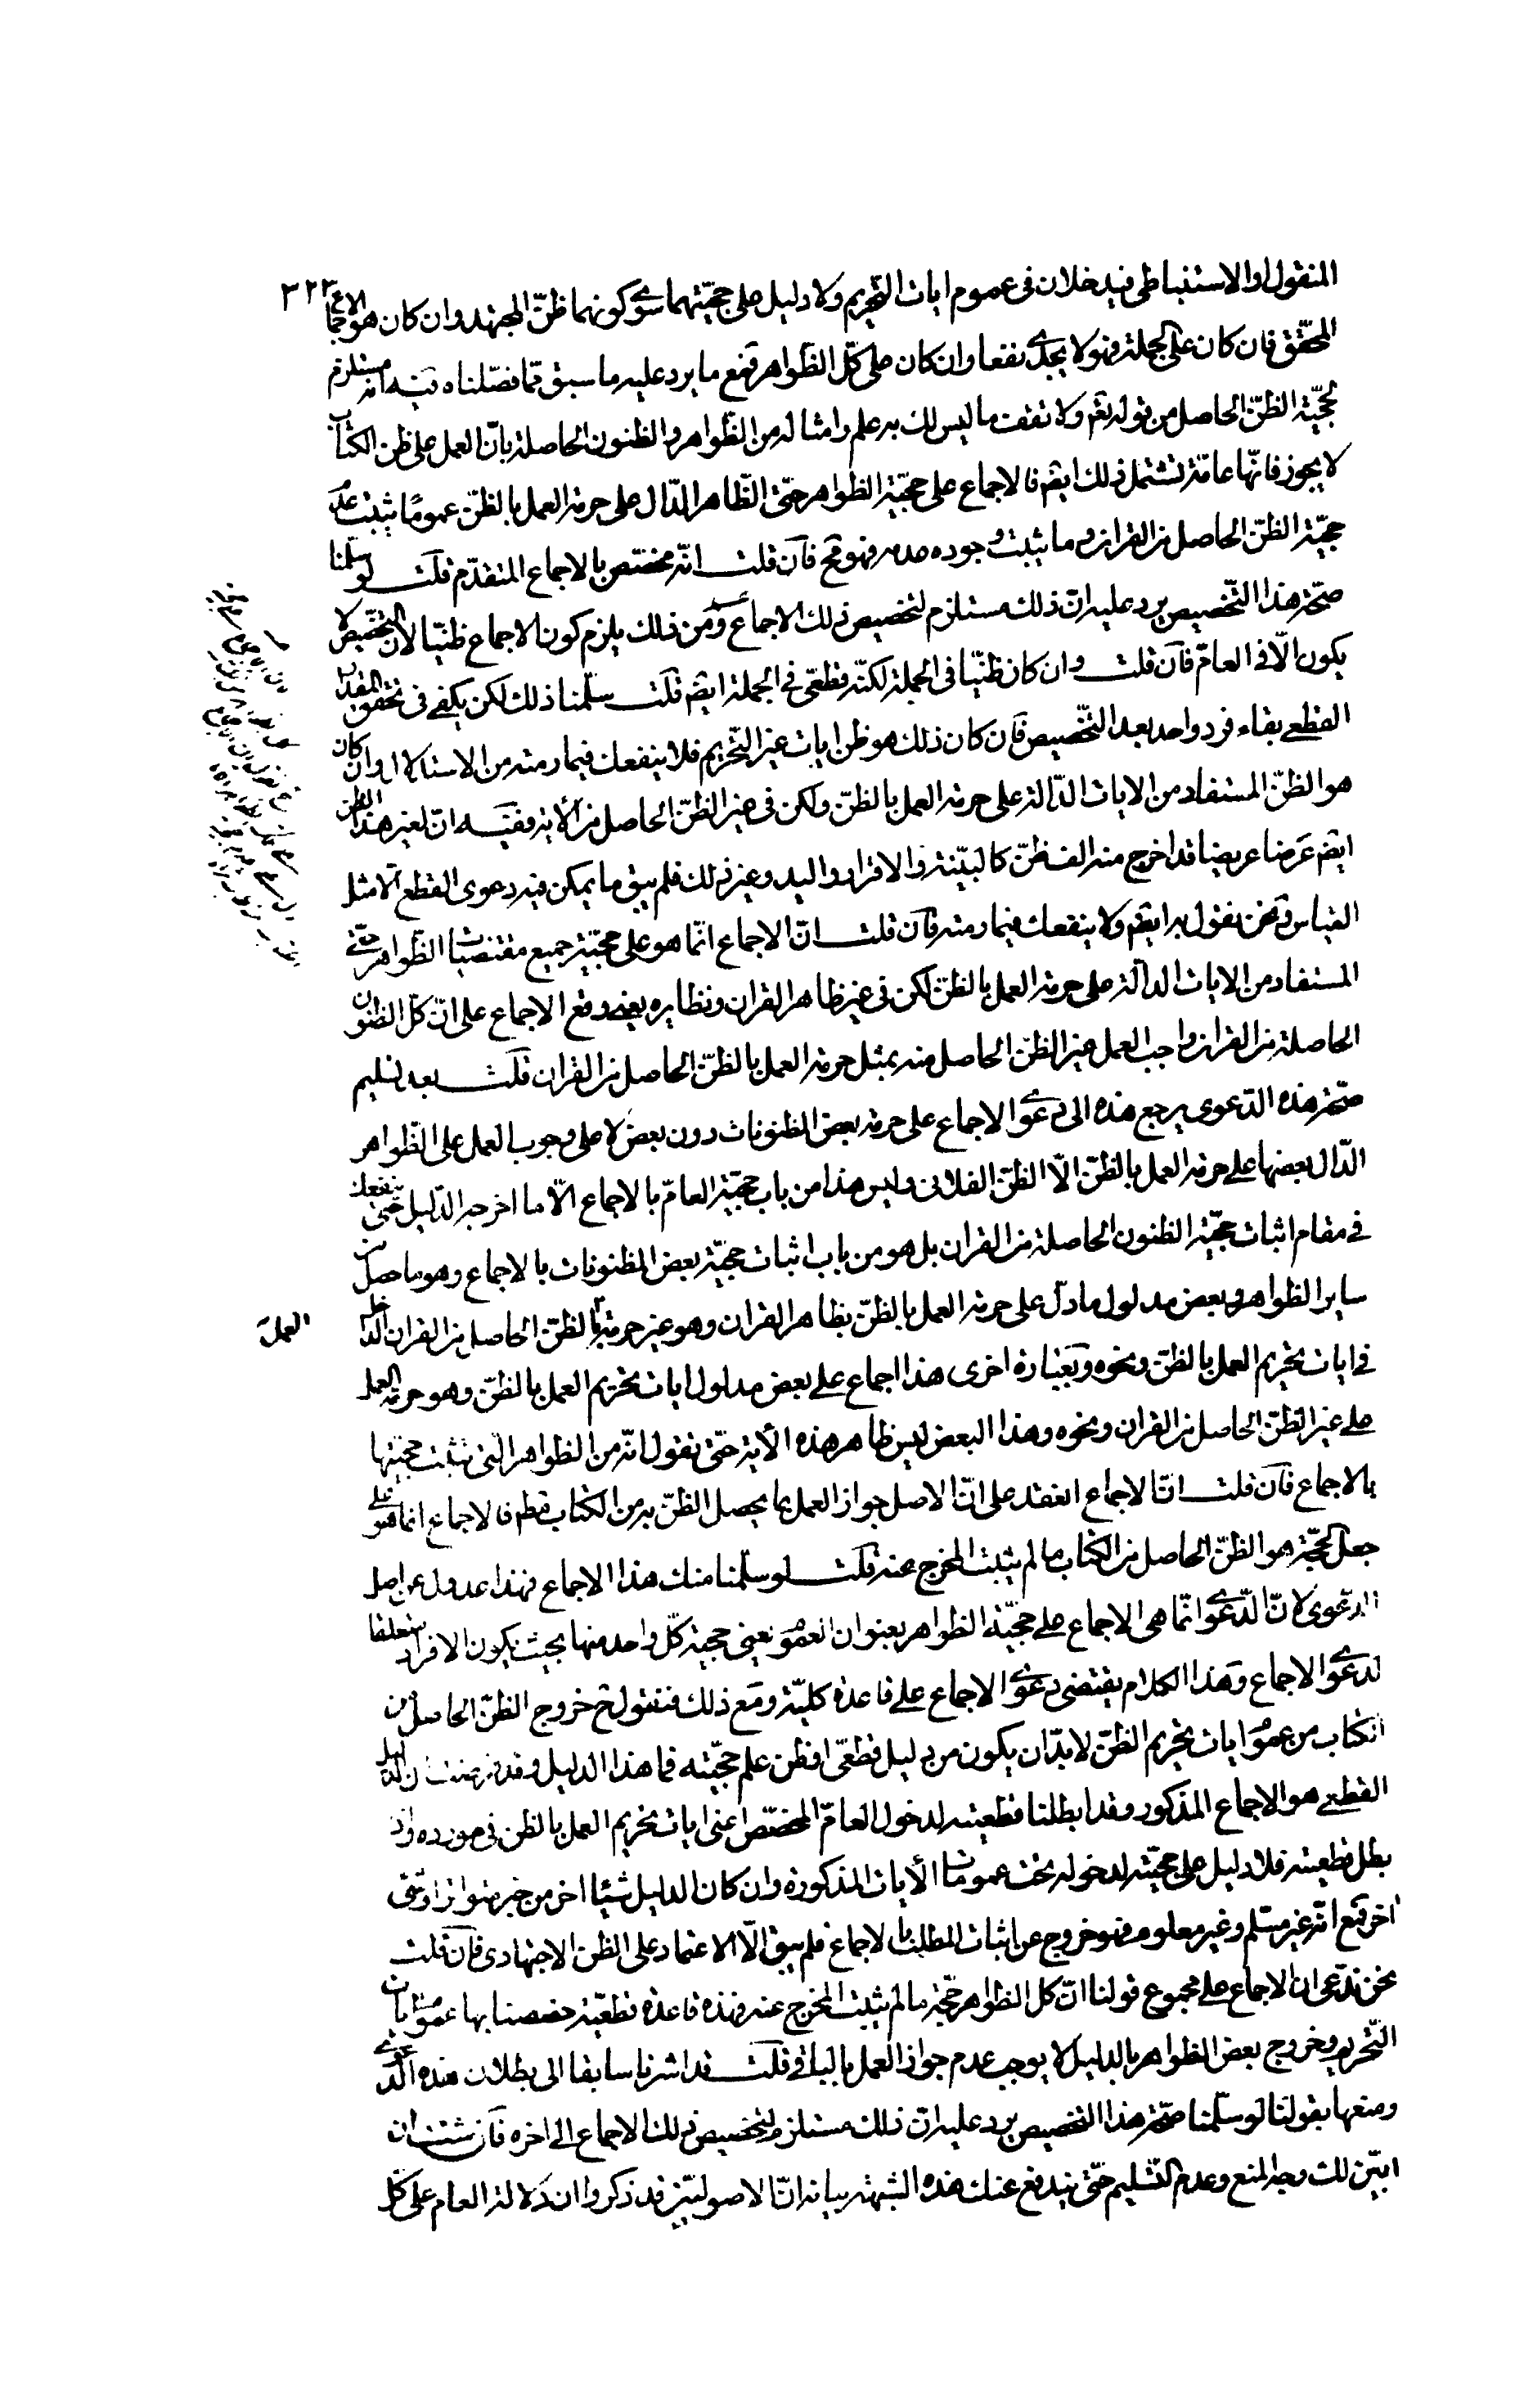 ٣٢٣
المنقول او الاستنباطى فيدخلان فى عموم ايات التّحريم ولا دليل على حجيّتهما سوى كونهما ظنّ المجتهد وان كان هو الاجماع
المحقّق فان كان على الجملة فهو لا يجدى نفعا وان كان على كلّ الظّواهر فمع ما يرد عليه ما سبق ممّا فصّلناه فيه انه مستلزم
لحجيّة الظنّ الحاصل من قوله تعم ولا تقف ما ليس لك به علم وامثاله من الظّواهر والظنون الحاصلة بانّ العمل على ظن الكتاب
لا يجوز فانّها عامّة تشتمل ذلك ايضم فالاجماع على حجيّة الظواهر حتّى الظّاهر الدّال على حرمة العمل بالظنّ عموما يثبت عدم
حجيّة الظنّ الحاصل من القران وما يثبت وجوده عدمه فهو مح فان قلت انّه مختص بالاجماع المتقدّم قلت لو سلّمنا
صحّة هذا التّخصيص يرد عليه انّ ذلك مستلزم لتخصيص ذلك الاجماع ومن ذلك يلزم كون الاجماع ظنيّا لان التخصيص لا
يكون الّا فى العامّ فان قلت وان كان ظنّيا فى الجملة لكنّه قطعّى فى الجملة ايضم قلت سلّمنا ذلك لكن يكفى فى تحقق المقدار
القطعى بقاء فرد واحد بعد التّخصيص فان كان ذلك هو ظن ايات غير التّحريم فلا ينفعك فيما رمته من الاستدلال وان كان
هو الظنّ المستفاد من الايات الدّالة على حرمة العمل بالظنّ ولكن فى غير الظنّ الحاصل من الأية ففيه انّ لغير هذا الظن
ايضم عَرضا عريضا قد اخرج منه الف ظنّ كالبيّنة والاقرار واليد وغير ذلك فلم يبق ما يمكن فيه دعوى القطع الّا مثل
القياس ونحن نقول به ايضم ولا ينفعك فيما رمته فان قلت انّ الاجماع انّما هو على حجيّة جميع مقتضيات الظّواهر حتّى
المستفاد من الايات الدالة على حرمة العمل بالظنّ لكن فى غير ظاهر القران ونظايره يعنى وقع الاجماع على انّ كلّ الظنون
الحاصلة من القران واجب العمل غير الظنّ الحاصل منه بمثل حرمة العمل بالظنّ الحاصل من القران قلت بعد تسليم
صحّة هذه الدّعوى يرجع هذه الى دعوى الاجماع على حرمة بعض المظنونات دون بعض لا على وجوب العمل على الظّواهر
الدّال بعضها على حرمة العمل بالظنّ الّا الظنّ الفلانى وليس هذا من باب حجيّة العامّ بالاجماع الّا ما اخرجه الدّليل حتى ينفعك
فى مقام اثبات حجيّة الظنون الحاصلة من القران بل هو من باب اثبات حجيّة بعض المظنونات بالاجماع وهو ما حصل من
ساير الظواهر وبعض مدلول ما دلّ على حرمة العمل بالظنّ بظاهر القران وهو غير حرمة بالظنّ الحاصل من القران الداخل
العمل
فى ايات تحريم العمل بالظنّ ونحوه وبعبارة اخرى هذا اجماع على بعض مدلول ايات تحريم العمل بالظنّ وهو حرمة العمل
على غير الظنّ الحاصل من القران ونحوه وهذا البعض ليس ظاهر هذه الأية حتّى نقول انّه من الظواهر الّتى تثبت حجيّتها
بالاجماع فان قلت انّ الاجماع انعقد على انّ الاصل جواز العمل بما يحصل الظنّ به من الكتاب فقط فالاجماع انما هو على
جعل الحجّة هو الظنّ الحاصل من الكتاب ما لم يثبت المخرج عنه قلت لو سلّمنا منك هذا الاجماع فهذا عدول عن اصل
الدعوى لانّ الدّعوى انّما هى الاجماع على حجيّة الظواهر بعنوان العموم يعنى حجية كلّ واحد منها بحيث يكون الافراد متعلقا
لدعوى الاجماع وهذا الكلام يقتضى دعوى الاجماع على قاعدة كليّة ومع ذلك فنقول ح خروج الظنّ الحاصل من
الكتاب من عموم ايات تحريم الظنّ لا بدّ ان يكون من دليل قطعّى او ظن علم حجيّته فما هذا الدليل وقد فرضت ان الدليل
القطعى هو الاجماع المذكور وقد ابطلنا قطعيته لدخول العامّ المخصّص اعنى ايات تحريم العمل بالظن فى مورده واذ
بطل قطعيته فلا دليل على حجيّته لدخوله تحت عمومات الأيات المذكورة وان كان الدليل شيئا اخر من خبر متواتر او شى
اخر فمع انّه غير مسلّم وغير معلوم فهو خروج عن اثبات المطلب بالاجماع فلم يبق الّا الاعتماد على الظن الاجتهادى فان قلت
نحن ندّعى ان الاجماع على مجموع قولنا انّ كل الظواهر حجّة ما لم يثبت المخرج عنه فهذه قاعدة قطعيّة خصصنا بها عموم ايات
التّحريم وخروج بعض الظواهر بالدليل لا يوجب عدم جواز العمل بالباقى قلت قد اشرنا سابقا الى بطلان هذه الدعوى
ومنعها بقولنا لو سلّمنا صحّة هذا التخصيص يرد عليه انّ ذلك مستلزم لتخصيص ذلك الاجماع الى اخره فان شئت ان
ابيّن لك وجه المنع وعدم التّسليم حتّى يندفع عنك هذه الشبهة بيانه انّ الاصوليّين قد ذكروا ان دلالة العام على كل